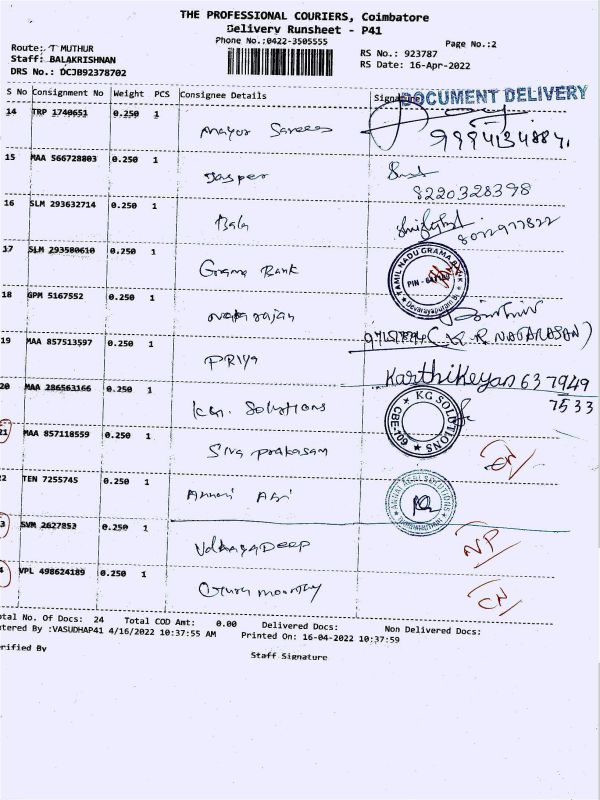 THE PROFESSIONAL COURIERS, Coimbatore
Delivery Runsheet - P41
Phone No.:0422-3505555
Page No.:2
Route: T MUTHUR
Staff: BALAKRISHNAN
DRS No.: DCJB92378702
RS No.: 923787
RS Date: 16-Apr-2022
S No Consignment No Weight PCS Consignee Details Signature
DOCUMENT DELIVERY
14 TRP 1740651 0.250 1 Sarees
15 MAA 566728803 0.250 1 Jasper
8220328398
16 SLM 293632714 0.250 1 Bala
17 SLM 293580610 0.250 1 Grama Bank
TAMIL NADU GRAMA BANK
PIN -
Devarayapuram Br.
18 GPM 5167552 0.250 1 natarajan
(K R NATARASAN)
19 MAA 857513597 0.250 1 PRIYA
Karthikeyan 637949
7533
20 MAA 286563166 0.250 1 Solutions
KG SOLUTIONS
CBE-
21 MAA 857118559 0.250 1 Siva prakasam
22 TEN 7255745 0.250 1
23 SVM 2627853 0.250 1
NP
24 VPL 498624189 0.250 1
Total No. Of Docs: 24 Total COD Amt: 0.00 Delivered Docs: Non Delivered Docs:
ntered By :VASUDHAP41 4/16/2022 10:37:55 AM Printed On: 16-04-2022 10:37:59
rified By
Staff Signature